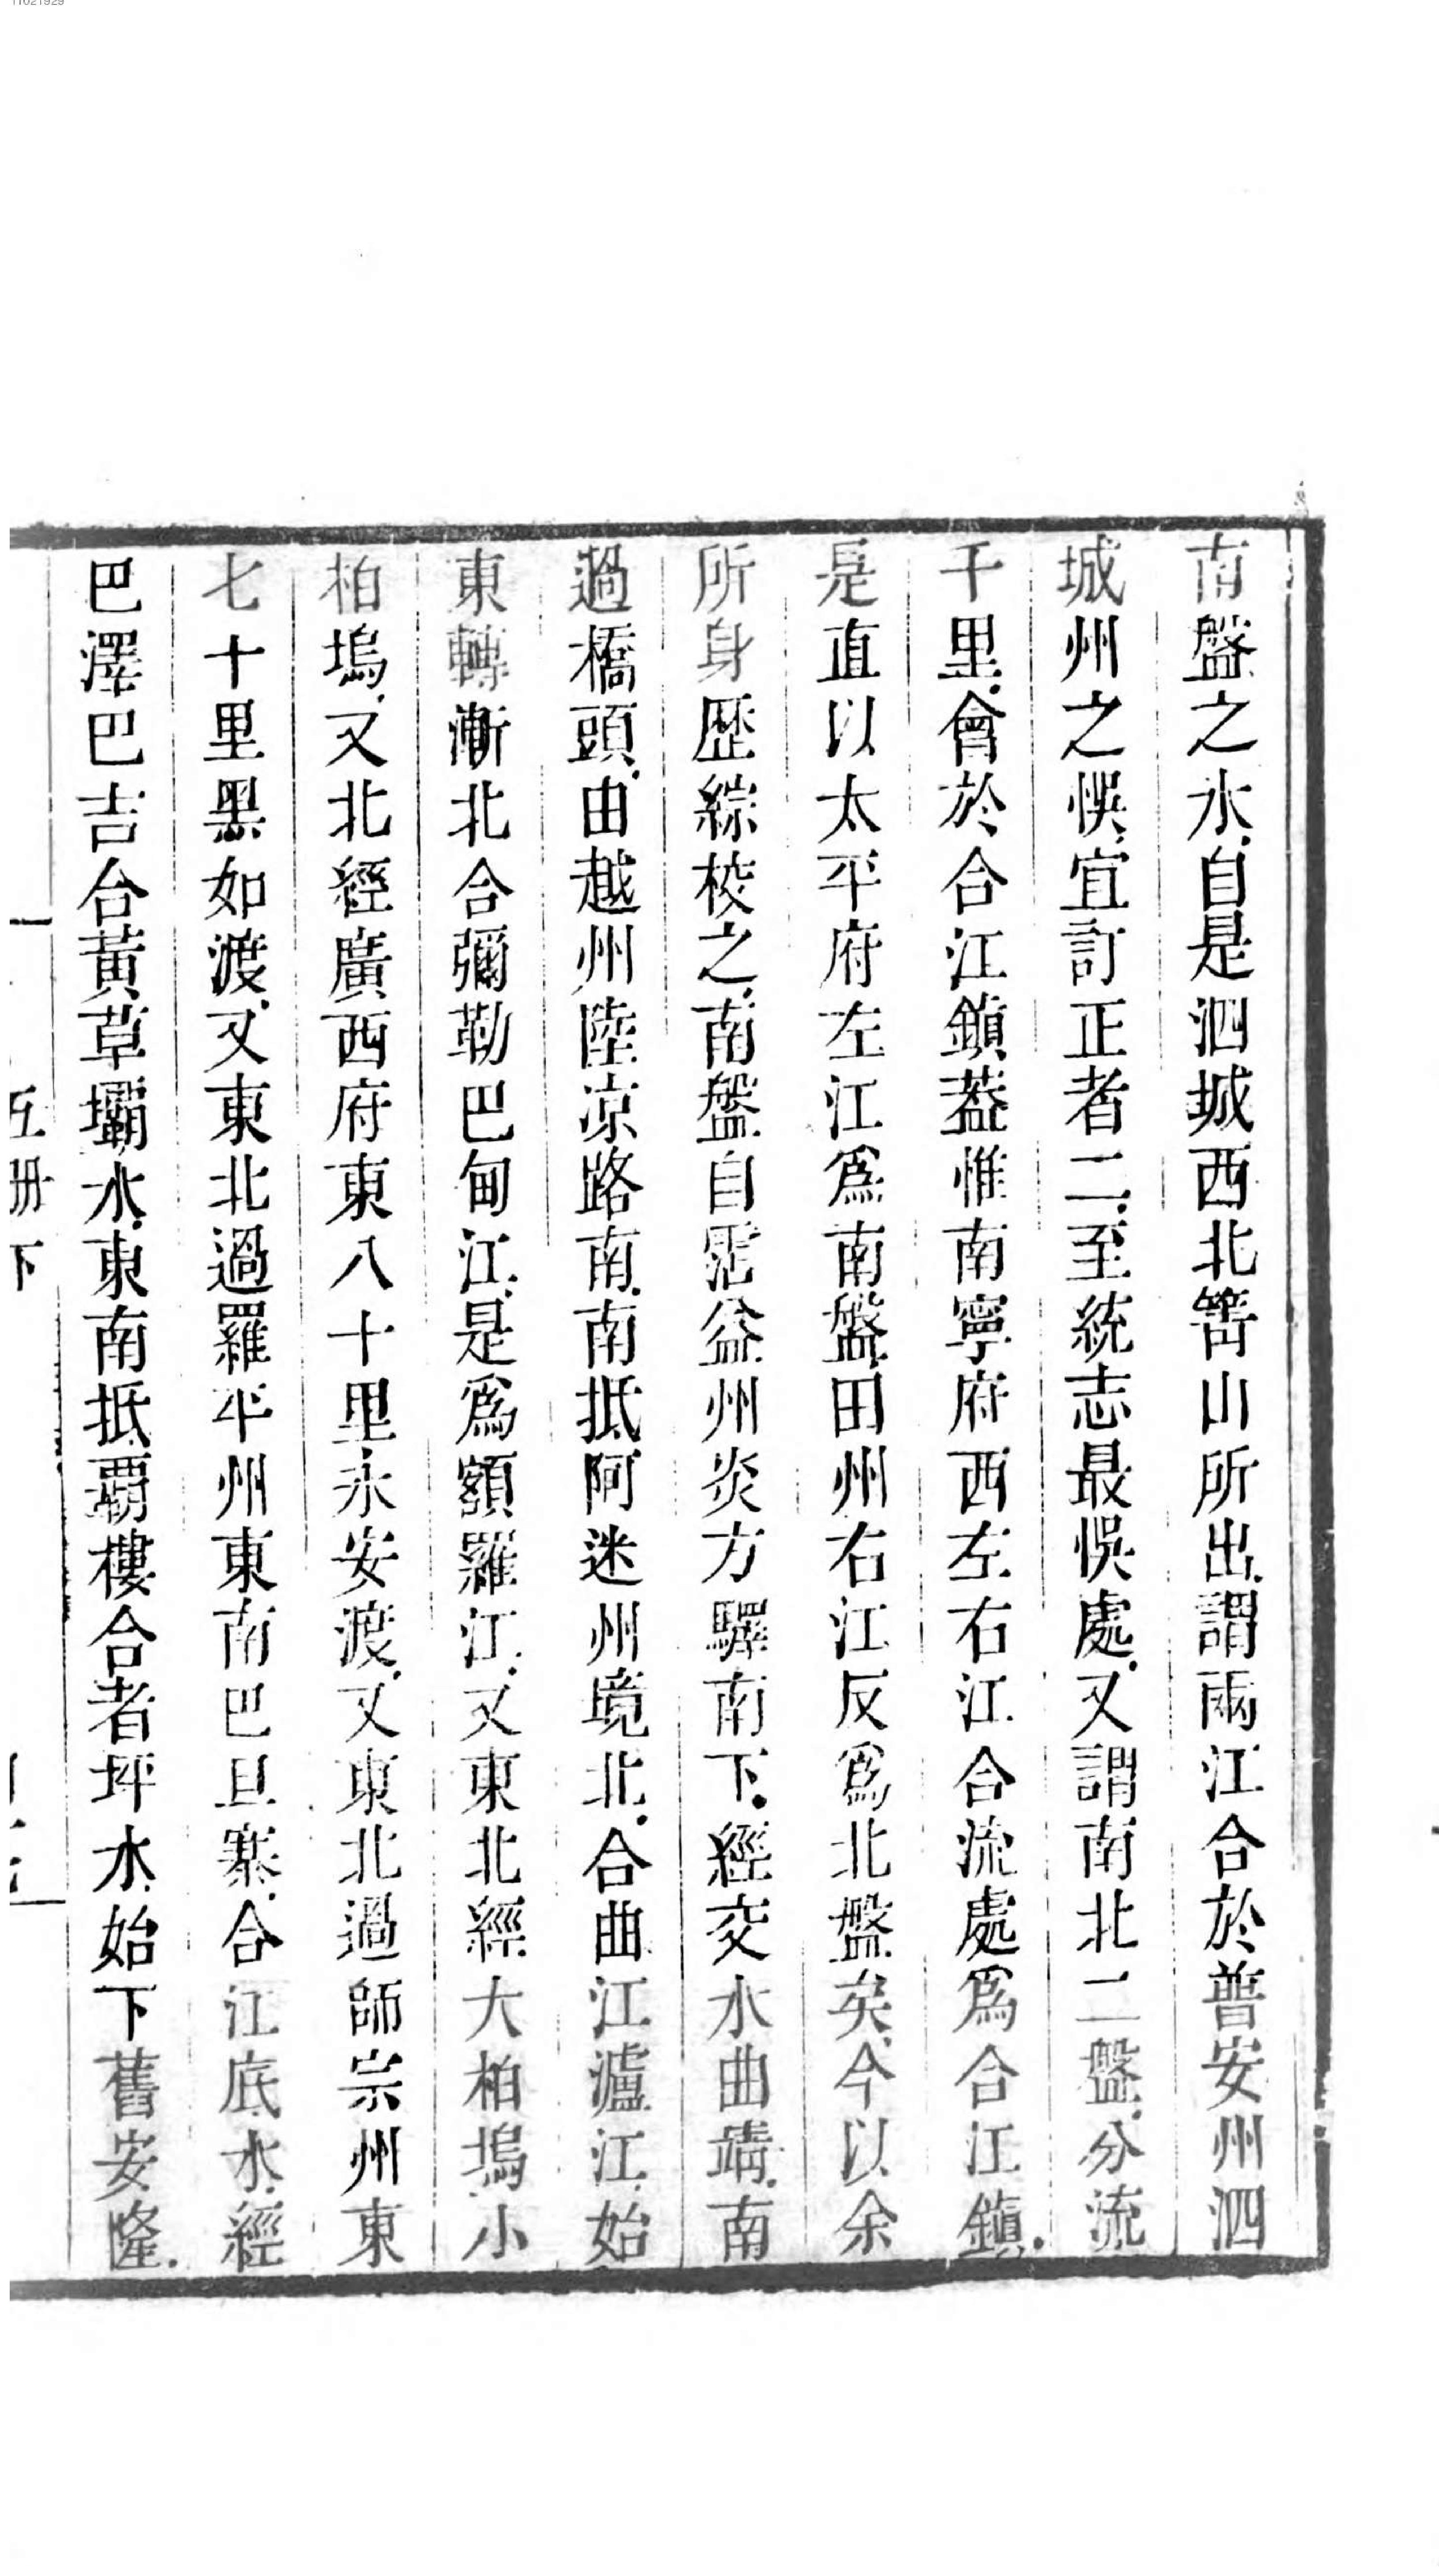 11021929
南盤之水、自是泗城西北箐山所出、謂兩江合於普安州泗
城州之悞、宜訂正者二、至統志最悞處、又謂南北二盤、分流
千里、會於合江鎮、葢惟南寧府西左右江合流處爲合江鎮、
是直以太平府左江爲南盤、田州右江反爲北盤矣、今以余
所身歷綜校之、南盤自霑益州炎方驛南下、經交水曲靖、南
過橋頭、由越州陸涼路南、南抵阿迷州境北、合曲江瀘江、始
東轉漸北合彌勒巴甸江、是爲額羅江、又東北經大柏塢小
柏塢、又北經廣西府東八十里永安渡、又東北過師宗州東
七十里黑如渡、又東北過羅平州東南巴旦寨、合江底水、經
巴澤巴吉合黃草壩水、東南抵覇樓合者坪水、始下舊安隆、
五册下